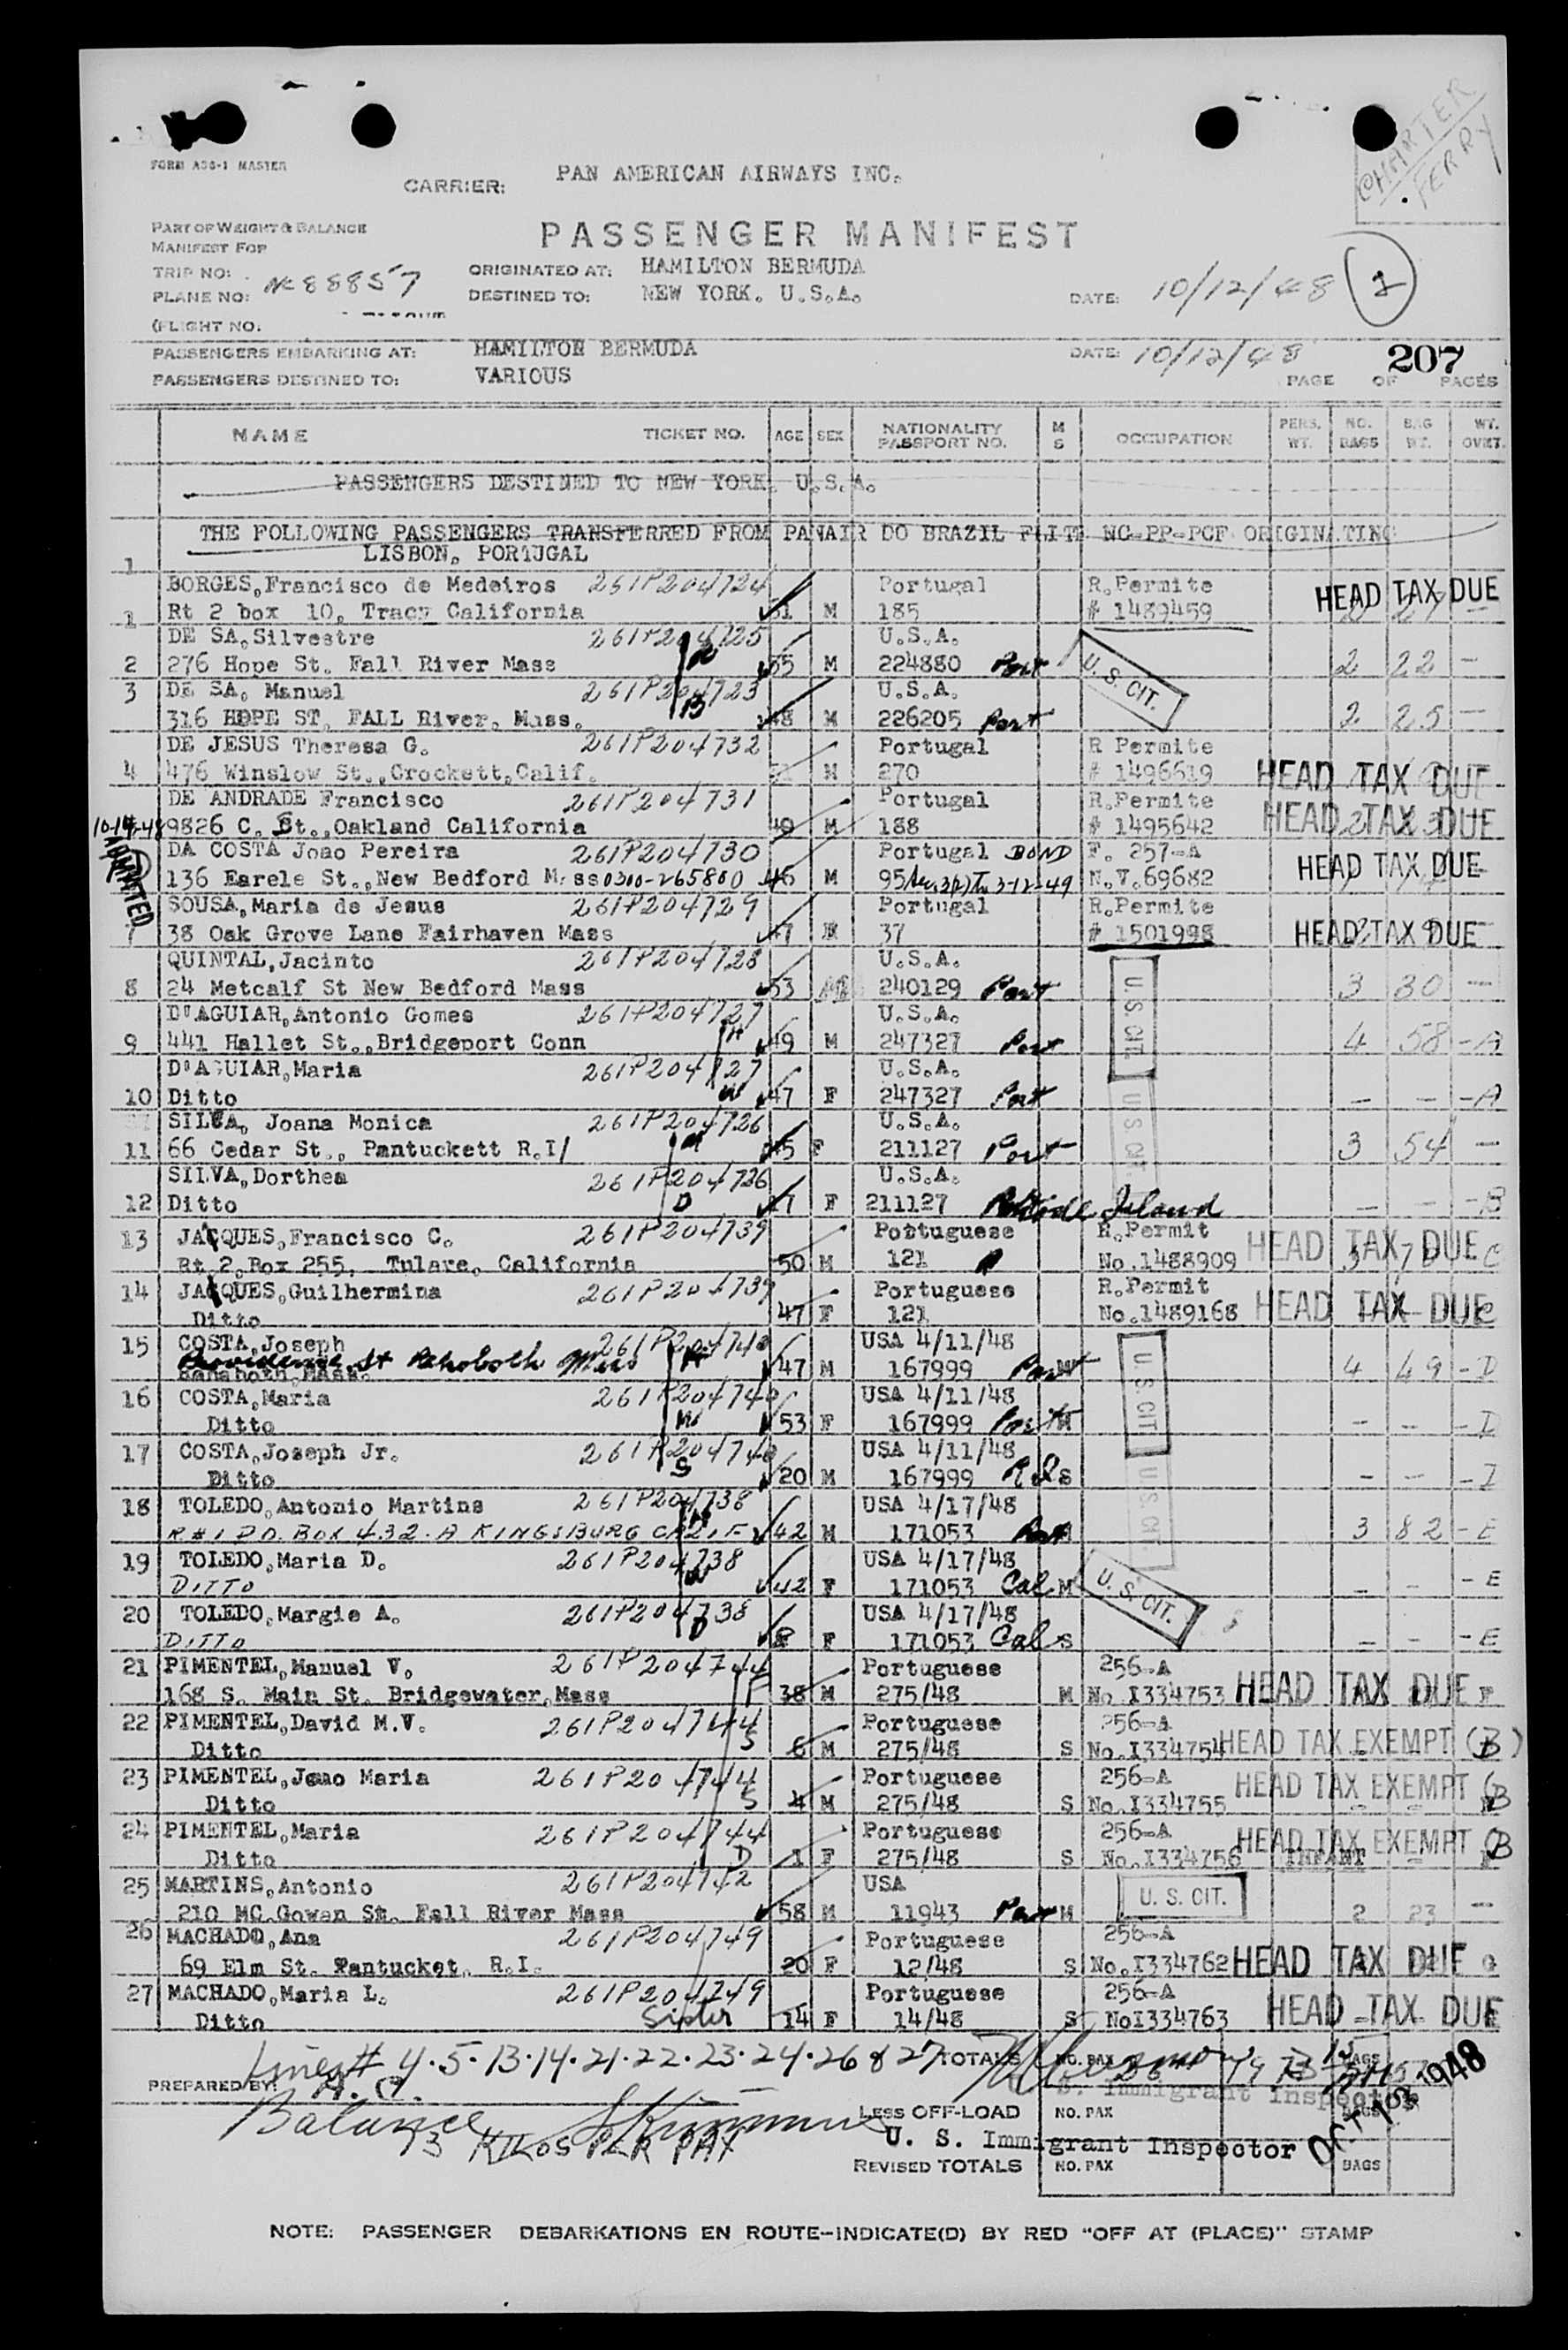 CHARTER
FERRY
FORM AGS-1 MASTER
CARRIER: PAN AMERICAN AIRWAYS INC.
PART OF WEIGHT & BALANCE
MANIFEST FOR
PASSENGER MANIFEST
TRIP NO:
PLANE NO: NC 88857
ORIGINATED AT: HAMILTON BERMUDA
DESTINED TO: NEW YORK. U.S.A.
DATE: 10/12/48
(FLIGHT NO.
PASSENGERS EMBARKING AT: HAMILTON BERMUDA DATE: 10/12/48 207
PASSENGERS DESTINED TO: VARIOUS PAGE OF PAGES
NAME TICKET NO. AGE SEX NATIONALITY PASSPORT NO. M S OCCUPATION PERS. WT. NO. BAGS BAG WT. WT. OVWT.
PASSENGERS DESTINED TO NEW YORK. U.S.A.
THE FOLLOWING PASSENGERS TRANSFERRED FROM PANAIR DO BRAZIL FLITE NC-PP-PCF ORIGINATING
LISBON, PORTUGAL
1
BORGES,Francisco de Medeiros 261P204724 Portugal R.Permite HEAD TAX DUE
1 Rt 2 box 10, Tracy California 51 M 185 # 1489459
DE SA,Silvestre 261P204725 U.S.A.
2 276 Hope St. Fall River Mass 55 M 224880 Port U. S. CIT. 2 22 -
3 DE SA, Manuel 261P204723 U.S.A.
316 HOPE ST. FALL River, Mass. 48 M 226205 Port 2 25 -
DE JESUS Theresa G. 261P204732 Portugal R Permite
4 476 Winslow St.,Crockett,Calif. 270 # 1496619 HEAD TAX DUE
DE ANDRADE Francisco 261P204731 Portugal R.Permite
10-14-48 9826 C. St.,Oakland California 49 M 188 # 1495642 HEAD TAX DUE
ADMITTED
DA COSTA Joao Pereira 261P204730 Portugal BOND F. 257-A
136 Earele St.,New Bedford Mass 0300-265800 46 M 95 3-12-49 N.V.69682 HEAD TAX DUE
SOUSA,Maria de Jesus 261P204729 Portugal R.Permite
7 38 Oak Grove Lane Fairhaven Mass 47 37 # 1501998 HEAD TAX DUE
QUINTAL,Jacinto 261P204728 U.S.A.
8 24 Metcalf St New Bedford Mass 53 240129 Port U. S. CIT. 3 30 -
D'AGUIAR,Antonio Gomes 261P204727 U.S.A.
9 441 Hallet St.,Bridgeport Conn H 49 M 247327 Port 4 58 - A
D'AGUIAR,Maria 261P204727 U.S.A.
10 Ditto W 47 F 247327 Port - - - A
SILVA, Joana Monica 261P204726 U.S.A. U S CIT.
11 66 Cedar St., Pantuckett R.I/ M 45 F 211127 Port 3 54 -
SILVA,Dorthea 261P204726 U.S.A.
12 Ditto D 17 F 211127 Rhode Island - - - B
13 JACQUES,Francisco C. 261P204739 Portuguese R.Permit
Rt 2,Box 255, Tulare, California 50 M 121 No.1488909 HEAD TAX DUE C
14 JACQUES,Guilhermina 261P204739 Portuguese R.Permit
Ditto 47 F 121 No.1489168 HEAD TAX DUE C
15 COSTA,Joseph 261P204740 USA 4/11/48
Providence St Rehoboth Mass H 47 M 167999 Port M U. S. CIT 4 49 - D
16 COSTA,Maria 261P204740 USA 4/11/48
Ditto W 53 F 167999 Port M - - - D
17 COSTA,Joseph Jr. 261P204740 USA 4/11/48
Ditto S 20 M 167999 R I S U.S. CIT. - - - D
18 TOLEDO,Antonio Martins 261P204738 USA 4/17/48
R#1 P.O. BOX 432-A KINGSBURG CALIF H 42 M 171053 Port M 3 82 - E
19 TOLEDO,Maria D. 261P204738 USA 4/17/48
DITTO W 42 F 171053 Cal M U. S. CIT. - - - E
20 TOLEDO,Margie A. 261P204738 USA 4/17/48
DITTO D 8 F 171053 Cal S - - - E
21 PIMENTEL,Manuel V. 261P204744 Portuguese 256-A
168 S. Main St. Bridgewater,Mass F 38 M 275/48 M No.I334753 HEAD TAX DUE F
22 PIMENTEL,David M.V. 261P204744 Portuguese 256-A
Ditto S 6 M 275/48 S No.I334754 HEAD TAX EXEMPT (B)
23 PIMENTEL,Joao Maria 261P204744 Portuguese 256-A
Ditto S 4 M 275/48 S No.I334755 HEAD TAX EXEMPT (B
24 PIMENTEL,Maria 261P204744 Portuguese 256-A
Ditto D 1 F 275/48 S No.I334756 INFANT HEAD TAX EXEMPT (B
25 MARTINS,Antonio 261P204742 USA U. S. CIT.
210 MC.Gowan St. Fall River Mass 58 M 11943 Port M 2 23 -
26 MACHADO,Ana 261P204749 Portuguese 256-A
69 Elm St. Pantucket, R.I. 20 F 12/48 S No.I334762 HEAD TAX DUE G
27 MACHADO,Maria L. 261P204749 Portuguese 256-A
Ditto Sister 14 F 14/48 S NoI334763 HEAD TAX DUE
Lines # 4·5·13·14·21·22·23·24·26 & 27 TOTALS NO. PAX 26 BAGS
PREPARED BY: U. S. Immigrant Inspector
Balance LESS OFF-LOAD NO. PAX BAGS OCT 13 1948
73 KILOS PER PAX U. S. Immigrant Inspector
REVISED TOTALS NO. PAX BAGS
NOTE: PASSENGER DEBARKATIONS EN ROUTE-INDICATE(D) BY RED "OFF AT (PLACE)" STAMP